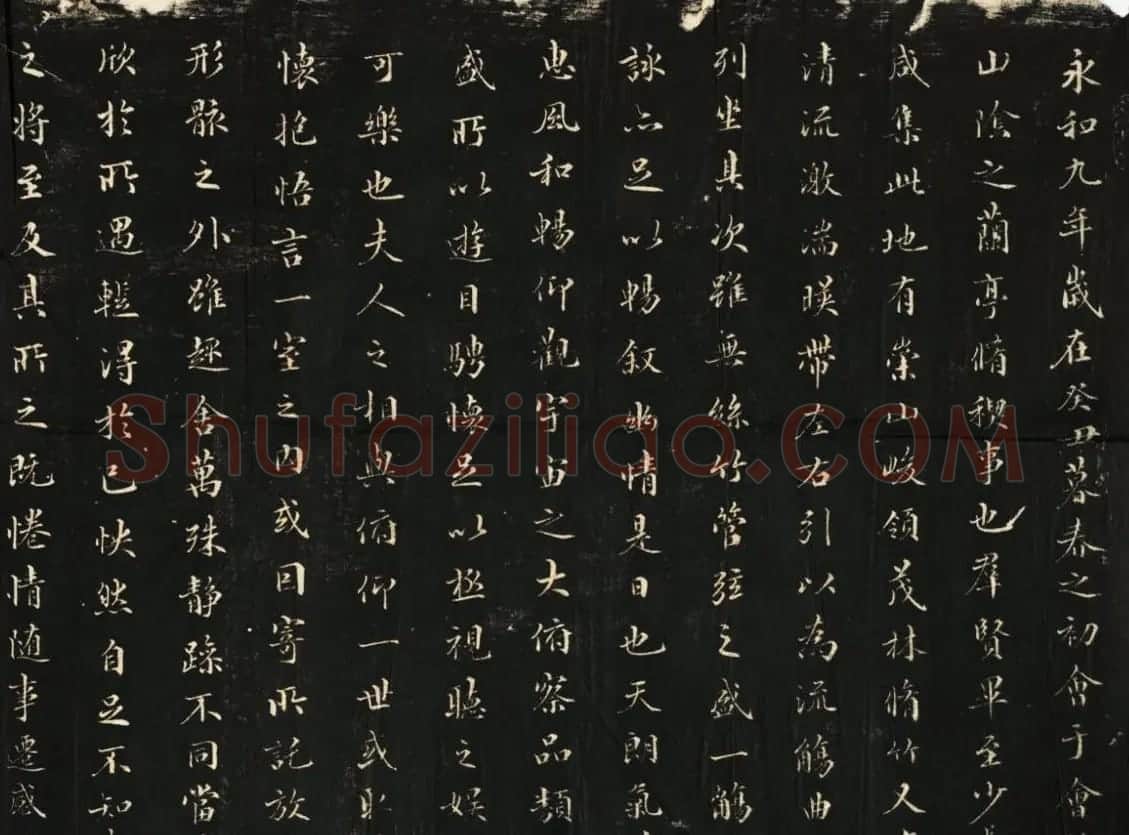 永和九年歲在癸丑暮春之初會于會
山陰之蘭亭脩稧事也羣賢畢至少
咸集此地有崇山峻領茂林脩竹又
清流激湍暎帶左右引以為流觴曲
列坐其次雖無絲竹管弦之盛一觴
詠亦足以暢敘幽情是日也天朗氣
惠風和暢仰觀宇宙之大俯察品類
盛所以遊目騁懷足以極視聽之娛
可樂也夫人之相與俯仰一世或取
懷抱悟言一室之內或因寄所託放
形骸之外雖趣舍萬殊靜躁不同當
欣於所遇蹔得於己怏然自足不知
之將至及其所之既惓情随事遷感
Shufaziliao.COM